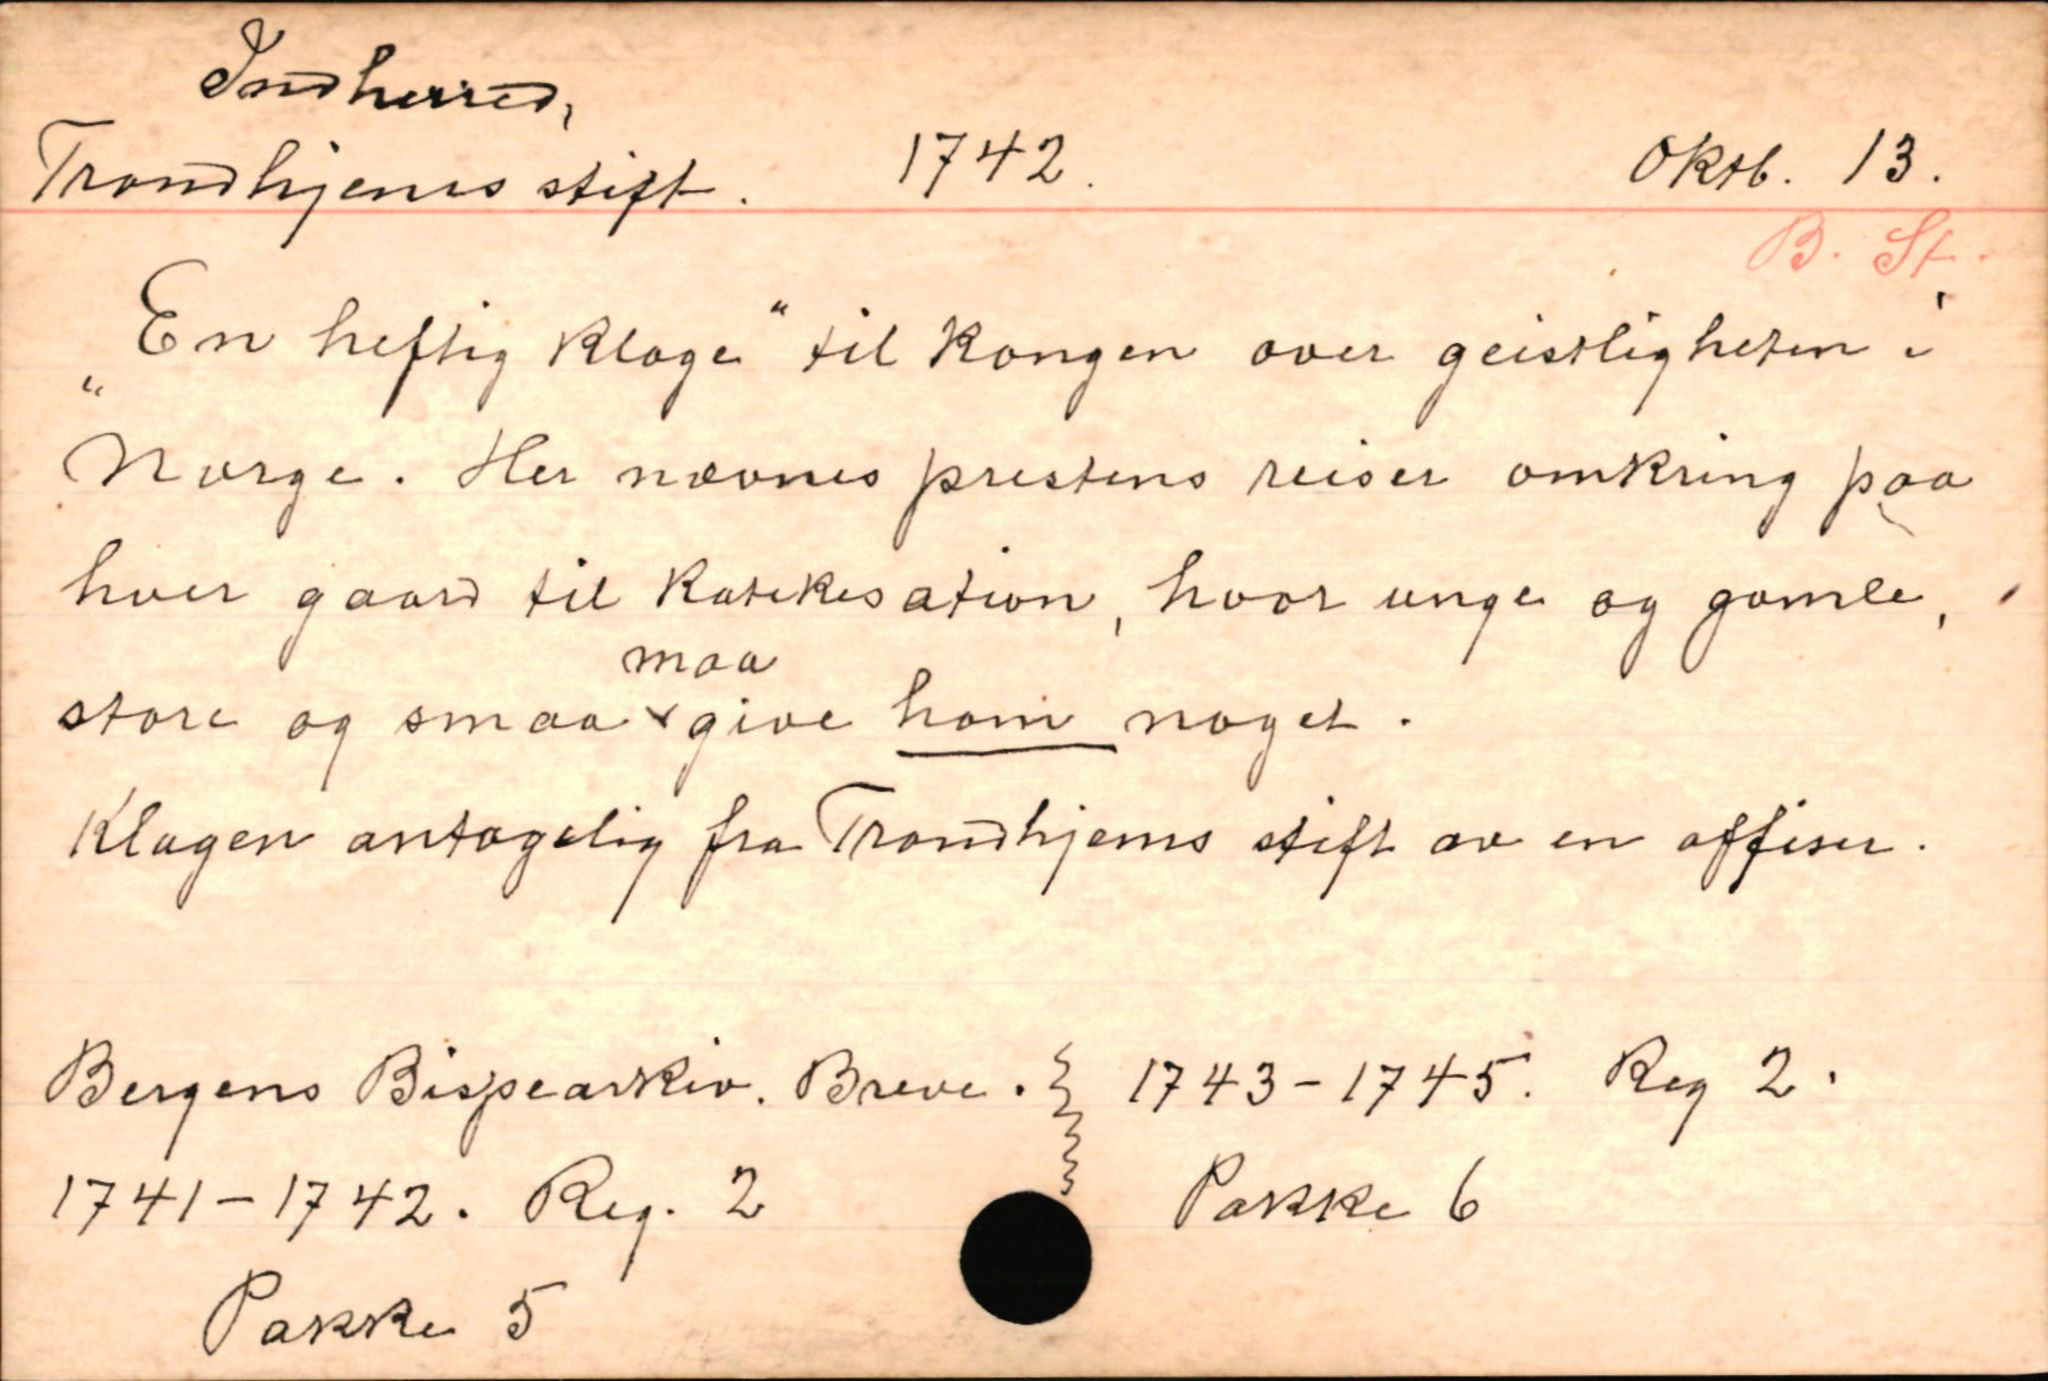 Indherred,
Trondhjems stift. 1742. Oktb. 13.
B. St.
"En heftig klage" til kongen over geistligheten i
Norge. Her nævnes prestens reiser omkring paa
hver gaard til katekesation, hvor unge og gamle,
store og smaa maa give ham noget.
Klagen antagelig fra Trondhjems stift av en offiser.
Bergens Bispearkiv. Breve. 1743-1745. Reg 2.
1741-1742. Reg. 2 Pakke 6
Pakke 5